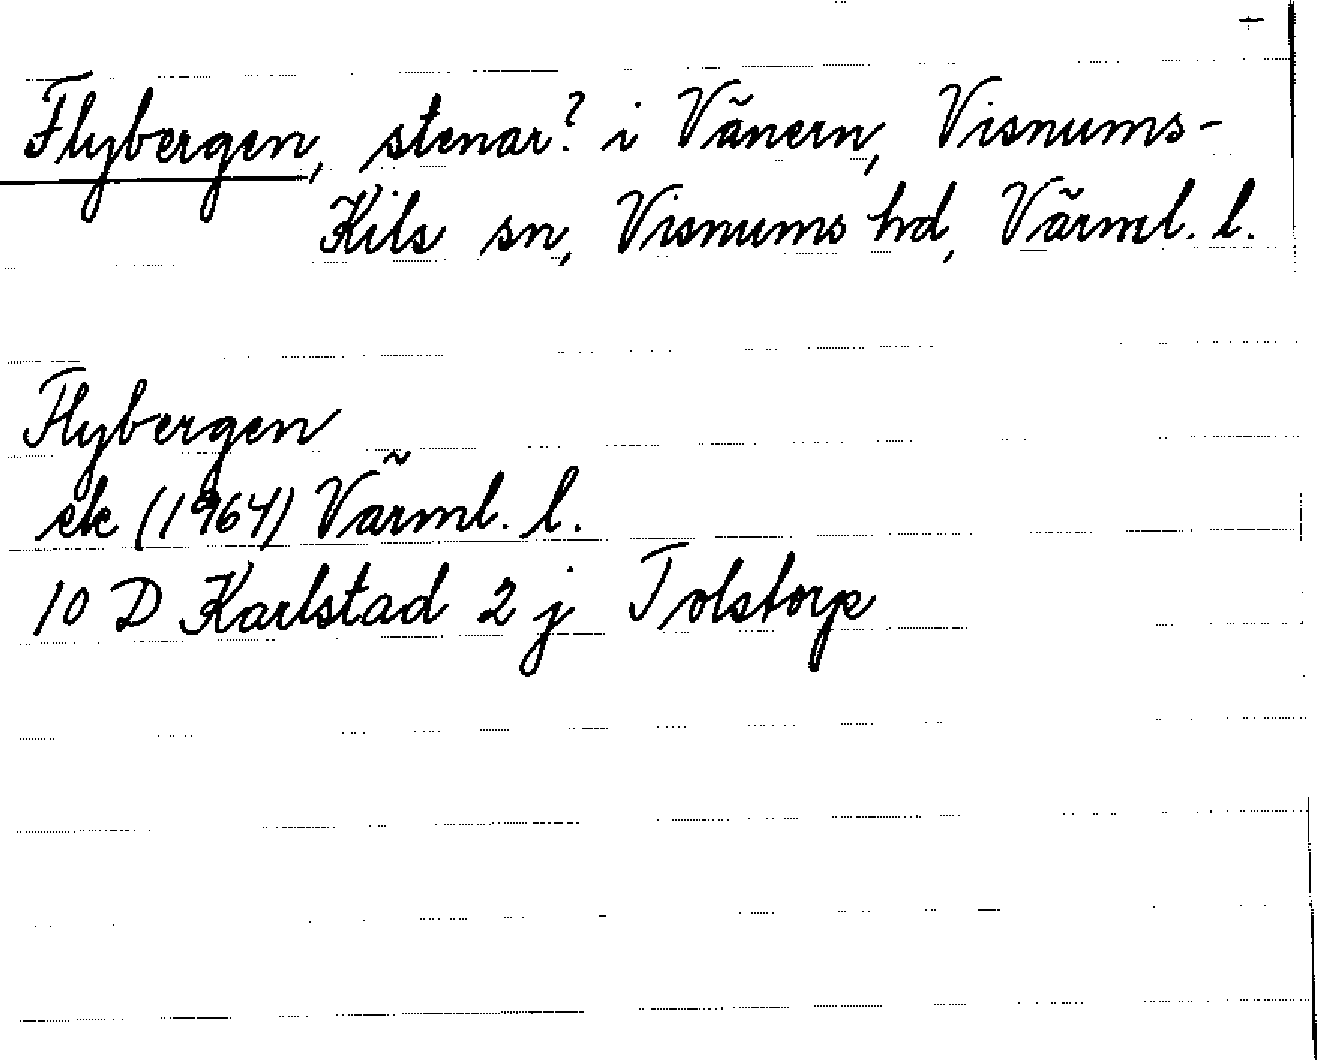 Flybergen, stenar? i Vänern, Visnums-
Kils sn, Visnums hd, Värml. l.
Flybergen
ek (1964) Värml. l.
10 D Karlstad 2 j Tolstorp